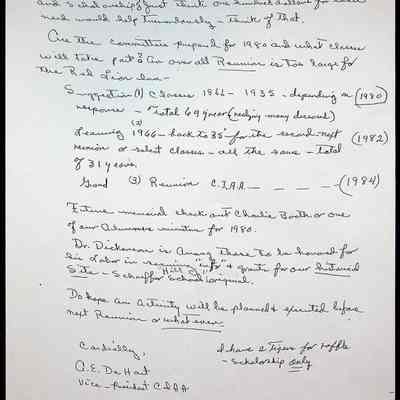 and scholarship! Just think one hundred dollars for each
need would help tremendously - Think of that.
Are the committees prepared for 1980 and what classes
will take part? An over all Reunion is too large for
the Red Lion Inn -
Suggestion (1) Classes 1966 - 1935 - depending on (1980)
response - Total 69 years (realizing many deceased)
(2)
Leaving 1966 - back to 35 - for the second next (1982)
reunion or select classes - all the same - Total
of 31 years.
Good (3) Reunion C.I.A.A — — — — (1984)
Future memorial check out Charlie Booth or one
of our Alumnus minister for 1980.
Dr. Dickerson is among those to be honored for
his labor in securing "info" & grants for our historical
Site - Hill School, original.
Do hope an activity will be planned & executed before
next Reunion or whatever.
Cordially,
A. E. De Hart
Vice-President C.I.A.A
I have 2 Tigers for raffle
- Scholarship only